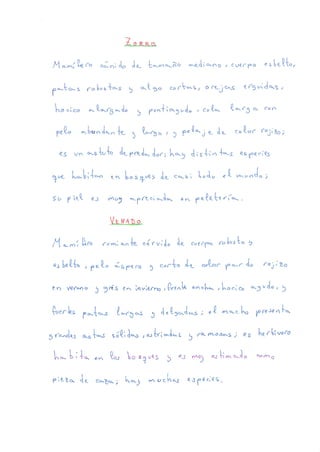 Zorro
Mamífero cánido de tamaño mediano, cuerpo esbelto,
patas robustas y algo cortas, orejas erguidas,
hocico alargado y puntiagudo, cola larga con
pelo abundante y largo, y pelaje de color rojizo;
es un astuto depredador; hay distintas especies
que habitan en bosques de casi todo el mundo;
su piel es muy apreciada en peletería.
VENADO
Mamífero rumiante cérvido de cuerpo robusto y
esbelto, pelo áspero y corto de color pardo rojizo
en verano y gris en invierno, frente ancha, hocico agudo, y
fuertes patas largas y delgadas; el macho presenta
grandes astas sólidas, estriadas y ramosas; es herbívoro
habita en los bosques y es muy estimado como
pieza de caza; hay muchas especies.